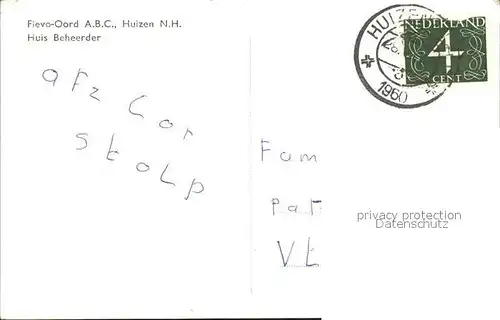 Fievo-Oord A.B.C., Huizen N.H.
Huis Beheerder
afz Cor
Stolp
HUIZEN
1960
NEDERLAND
4
CENT
Fam
Pat
Vl
privacy protection
Datenschutz